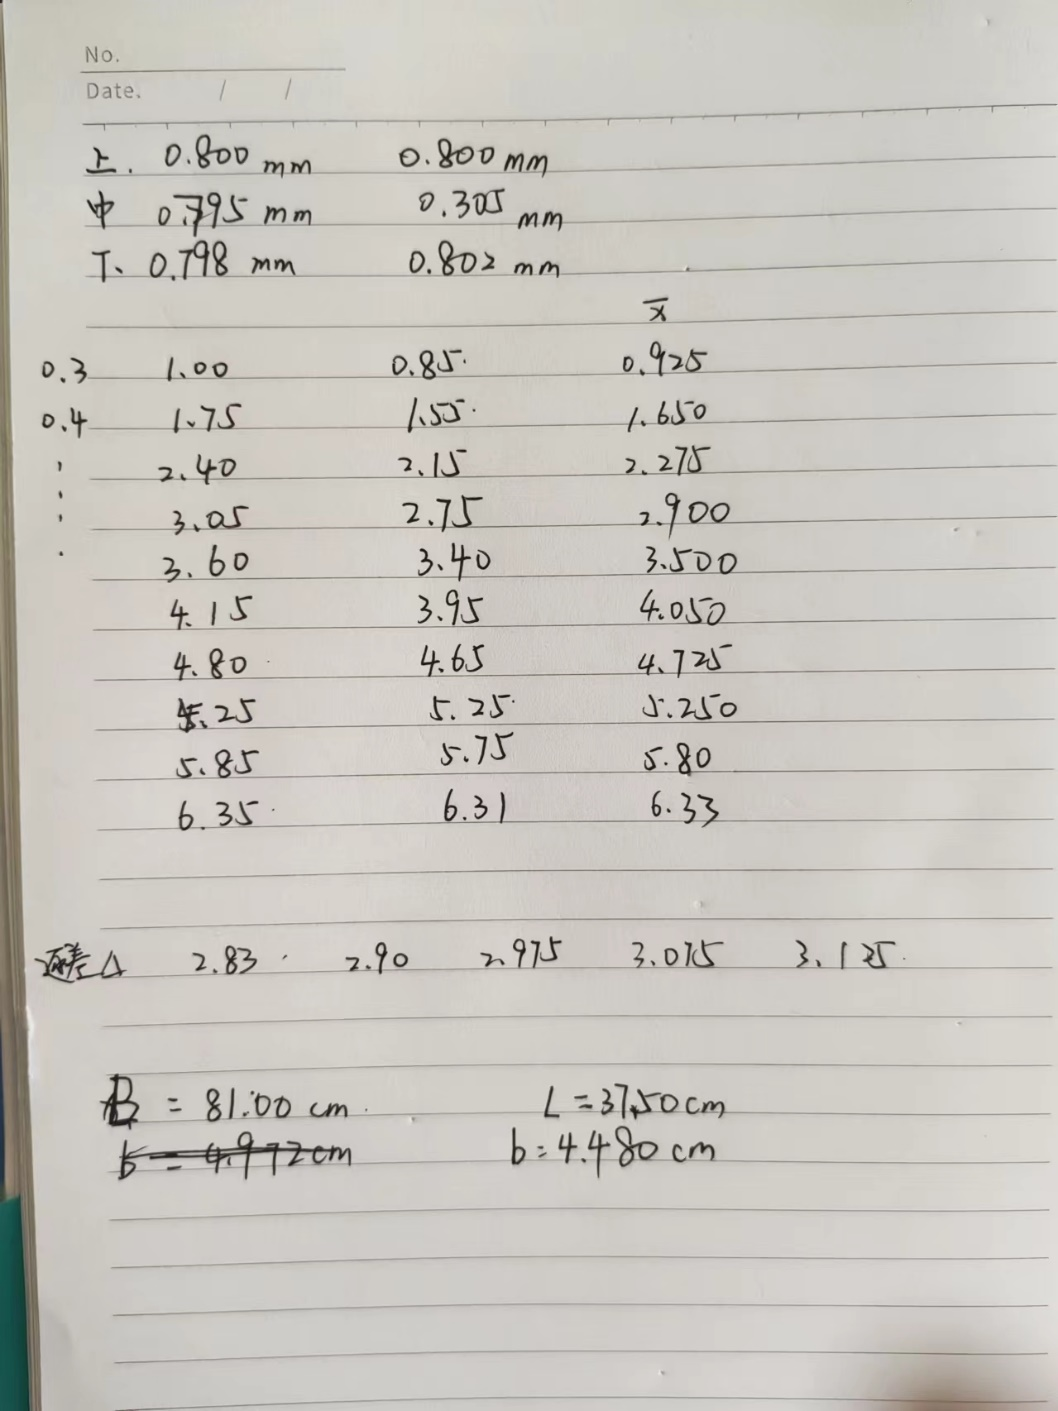 No.
Date. / /
上. 0.800 mm 0.800 mm
中 0.795 mm 0.305 mm
下、 0.798 mm 0.802 mm
x̄
0.3 1.00 0.85 0.925
0.4 1.75 1.55 1.650
2.40 2.15 2.275
3.05 2.75 2.900
3.60 3.40 3.500
4.15 3.95 4.050
4.80 4.65 4.725
5.25 5.25 5.250
5.85 5.75 5.80
6.35 6.31 6.33
逐差 Δ 2.83 2.90 2.975 3.075 3.125
B = 81.00 cm L = 37.50 cm
b = 4.972 cm b = 4.480 cm